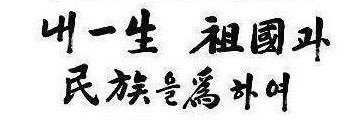 내 一生 祖國과
民族을 爲하여